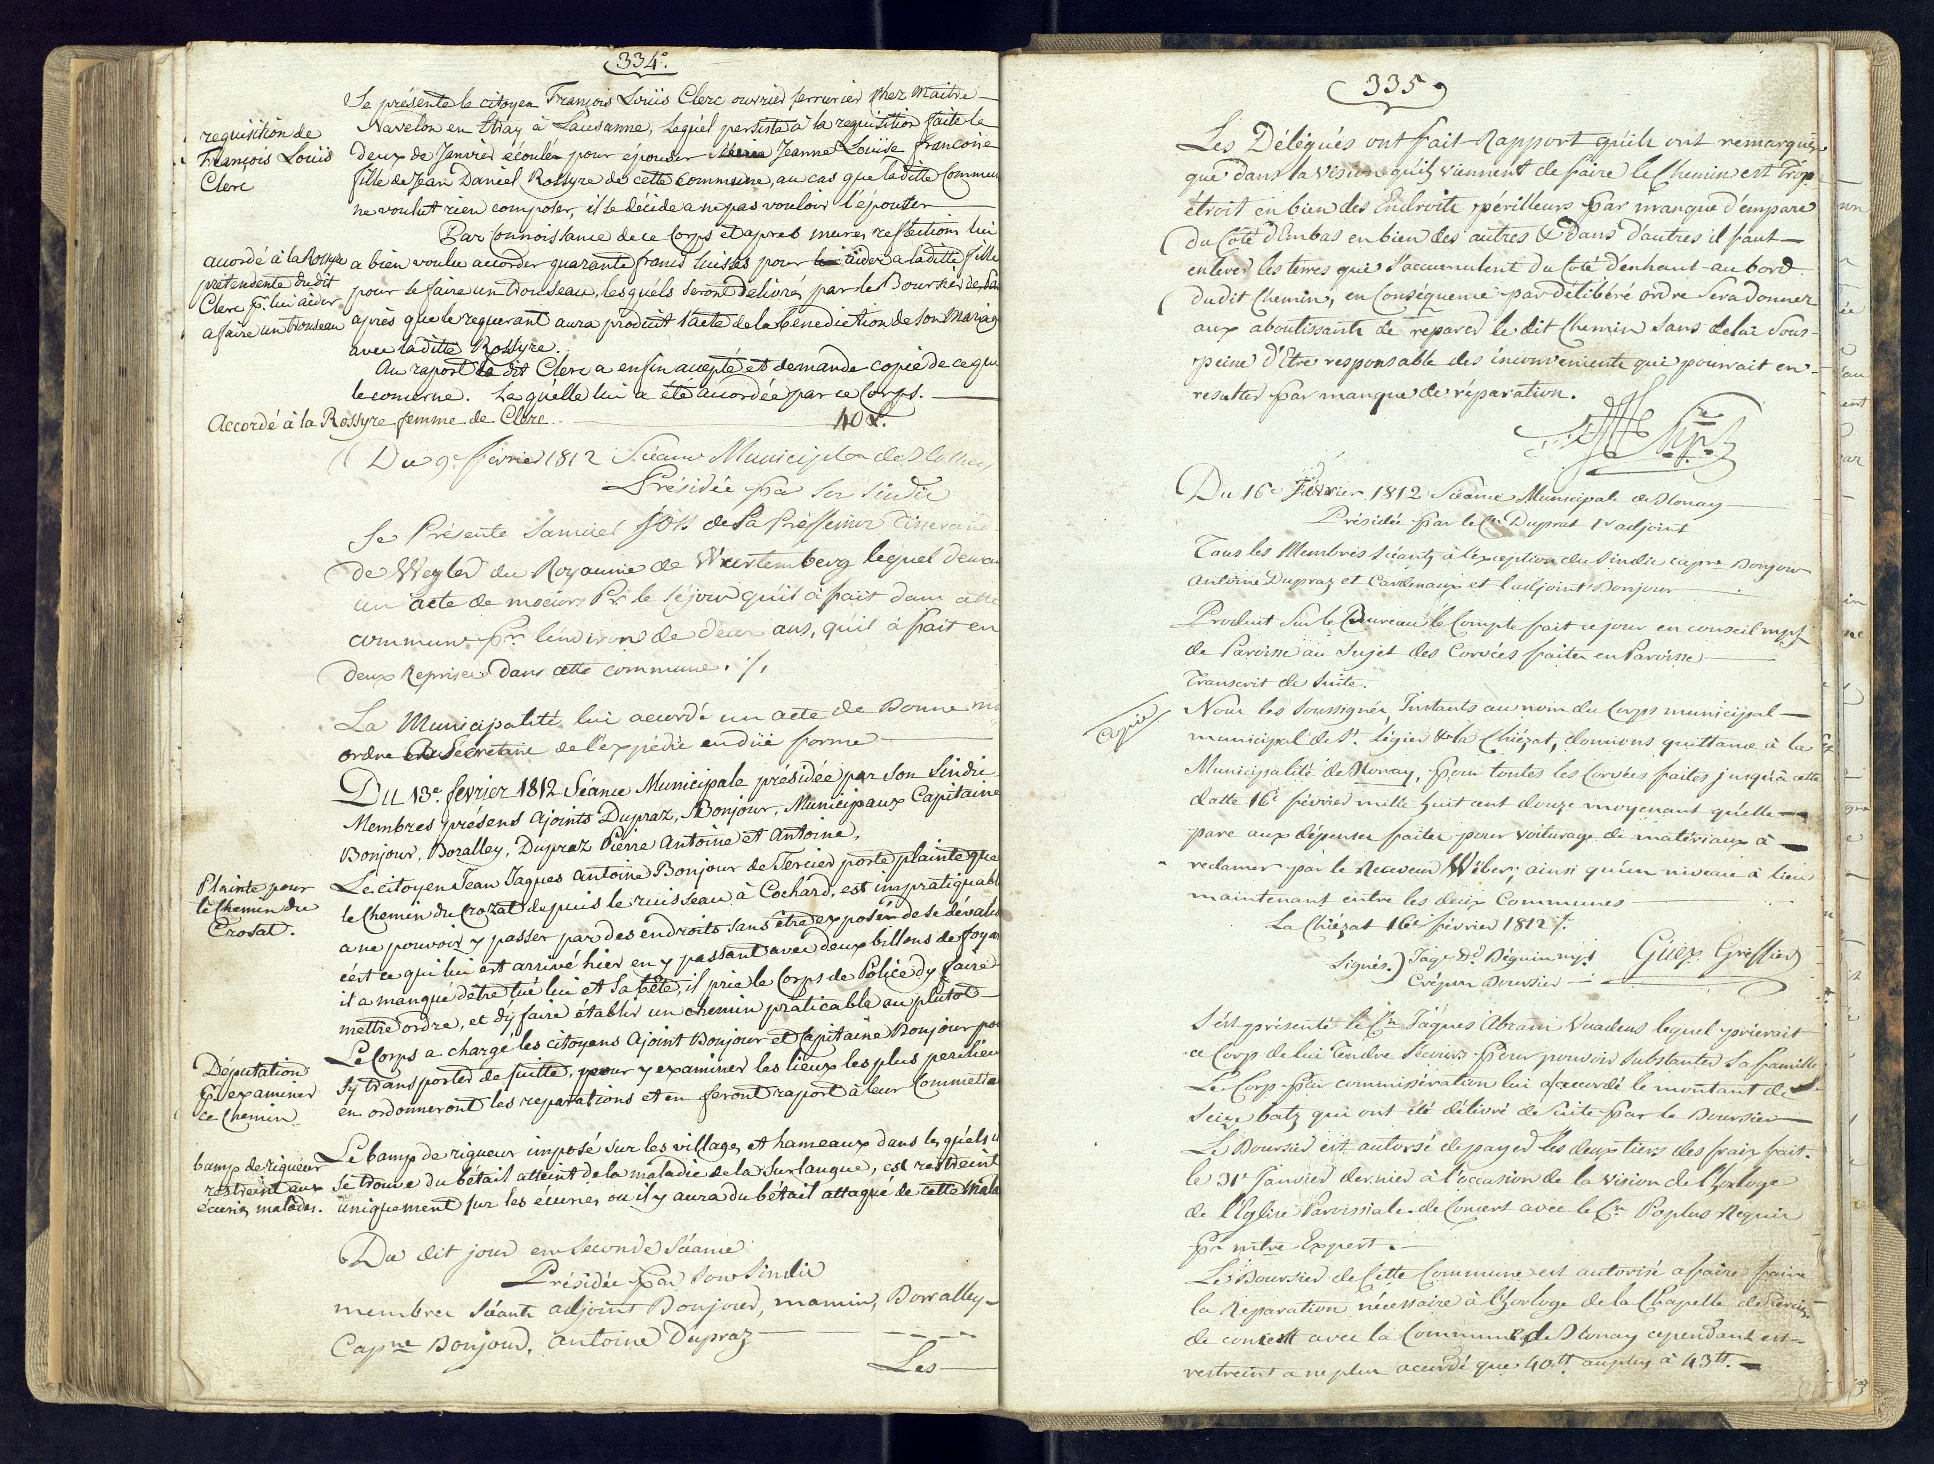 334.
requisition de
François Louis
Clerc
Se présente le citoyen François Louis Clerc ouvrier serrurier chez Maitre
Navelon en Etray à Lausanne, lequel persiste à la requisition faite le
deux de Janvier écoulé pour épouser Jeanne Louise francoise
fille de Jean Daniel Rossyre de cette commune, au cas que ladite Commun
ne voulut rien composer, il se décide a ne pas vouloir l'épouser
Par Connoissance de ce Corps et apres meures reflections lui
accordé à la Rossyre
prétendente dudit
Clerc pr. lui aider
a faire un trousseau
a bien voulu accorder quarante francs suisses pour aider a ladite fille
pour se faire un trousseau, lesquels seront delivrés par le Boursier de
après que le requerant aura produit l'acte de la bénédiction de son Mariag
avec ladite Rossyre.
Au raport le dit Clerc a enfin accepté et demande copie de ce qui
le concerne. Laquelle lui a été accordée par ce Corps.
Accordé à la Rossyre femme de Clerc 40 £.
Du 9e. février 1812 Séance Municiple de Blonay
Présidée par son sindic
Se Présente Samuel de la Tisserand
de Wegler du Royaume de Wurtemberg lequel deman
un acte de moeurs Pr. le séjour qu'il à fait dans cette
commune pr. l'environ de deux ans, qu'il à fait en
deux Reprises dans cette commune ./.
La Municipalité lui accordé un acte de Bonne
ordre Au Secretaire de l'expédié en düe forme
Du 13e. février 1812 Séance Municipale présidée par son Sindic
Membres présens Ajoints Dupraz, Bonjour, Municipaux Capitaine
Bonjour, Boralley, Dupraz Pierre Antoine et Antoine.
Plainte pour
le Chemin du
Crosat.
Le citoyen Jean Jaques Antoine Bonjour de Tercier porte plainte que
le Chemin du Crozat depuis le ruisseau à Cochard, est impratiquabl
a ne pouvoir y passer par des endroits sans être exposér de se dévaler
c'est ce qui lui est arrivé hier en y passant avec deux billons de foyar
il a manqué d'être tué lui et sa bête, il prie le Corps de Police d'y faire
mettre ordre, et d'y faire établir un chemin praticable au plutot
Députation
pr. examiner
ce Chemin
Le Corps a chargé les citoyens Ajoint Bonjour et Capitaine Bonjour po
s'y transporter de suitte, pour y examiner les lieux les plus perilieu
en ordonneront les reparations et en feront raport à leur Commetta
bamp de rigueur
restreint aux
écuries malades.
Le bamp de rigueur imposé sur les villages et hameaux dans lesquels i
se trouve du bétail atteint de la maladie de la Surlangue, est restreint
uniquement sur les écuries ou il y aura du bétail attaqué de cette Mala
Du dit jour en seconde Séance
Présidée par son Sindic
membres Séants adjoint Bonjour, mamin, Borralley
Capne Bonjour, antoine Dupraz
Les
335
Les Délégués ont fait Rapport qu'ils ont remarqués
que dans la vision qu'ils viennent de faire le Chemin est trop
étroit en bien des Endroits périlleurs par manque d'empare
du Coté d'Embas en bien des autres & dans d'autres il faut
enlever les terres qui s'accumulent du Coté d'enhaut au bord
dudit Chemin, en Conséquence par délibéré ordre Sera donner
aux aboutissants de reparer le dit Chemin sans delai sous
peine d'Etre responsable des inconvenients qui pourrait en
resulter par manque de réparation.
Du 16e Février 1812 Séance Municipale de Blonay
Présidée par le Cn. Duprat 1r adjoint
Tous les Membres séants à l'exception du Sindic capne Bonjour
Antoine Dupraz et Cardinaux et l'adjoint Bonjour
Produit sur le Bureau le Compte fait ce jour en conseil
de Paroisse au Sujet des Corvées faites en Paroisse
Transcrit de suite.
Copie
Nous les soussignés, Instants au nom du Corps municipal
municipal de St. Légier & la Chiézat, donnons quittance à la
Municipalité de Blonay, pour toutes les Corvées faites jusqu'à cette
datte 16e février mille huit cent douze moyenant qu'elle
pare aux dépenses faites pour voiturage de matériaux à
reclamer par le Receveur Wéber; ainsi qu'un niveau à lieu
maintenant entre les deux Communes
La Chiézat 16e février 1812 ./.
Signés.) Jaqe Dd. Béguin
Crépin Boursier
Güex Greffier
S'est présenté le Cn. Jaques Abram Vuadens lequel prierait
ce Corp de lui Tendre Secours pour pouvoir Substanter Sa famille
Le Corp par commisération lui a accordé le montant de
Seize batz qui ont été délivré de suite par le Boursier
Le Boursier est autorisé de payer les deux tiers des fraix fait
le 31e Janvier dernier à l'occasion de la vision de l'horloge
de l'Eglise Paroissiale de Concert avec le Cn. Poplus Requis
pr. mtre Expert.
Le Boursier de Cette Commune est autorisé a faire faire
la Reparation nécessaire à l'horloge de la Chapelle de Tercier
de concert avec la Commune de Blonay cependant est
restreint a ne plus accordé que 40 tt. au plus à 43 tt.